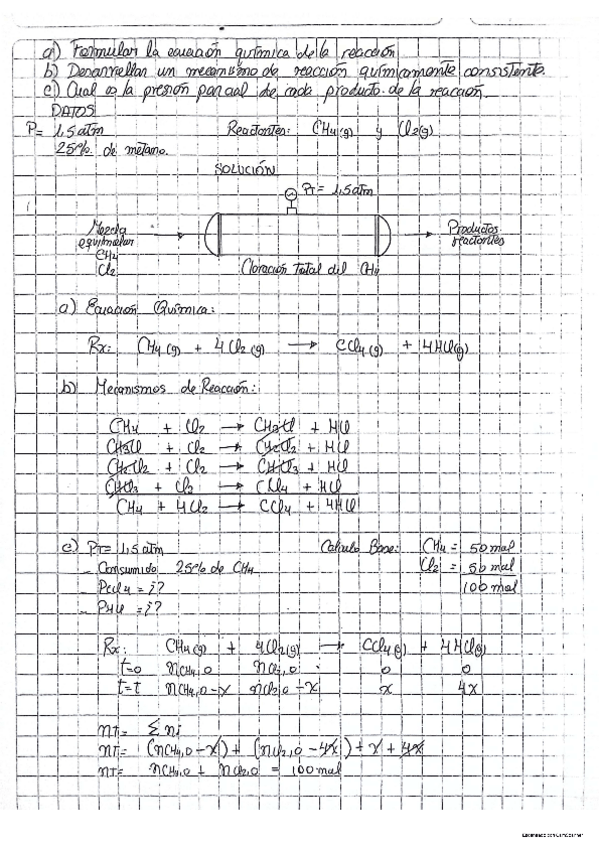 a) Formular la ecuación química de la reacción
b) Desarrollar un mecanismo de reacción químicamente consistente.
c) Cual es la presión parcial de cada producto de la reacción.
DATOS
P= 1,5 atm Reactantes: CH4(g) y Cl2(g)
25% de metano.
SOLUCIÓN
PT = 1,5 atm
Mezcla equimolar CH4 Cl2
Productos reactantes
Cloración Total del CH4
a) Ecuación Química:
Rx: CH4(g) + 4Cl2(g) → CCl4(g) + 4HCl(g)
b) Mecanismos de Reacción:
CH4 + Cl2 → CH3Cl + HCl
CH3Cl + Cl2 → CH2Cl2 + HCl
CH2Cl2 + Cl2 → CHCl3 + HCl
CHCl3 + Cl2 → CCl4 + HCl
CH4 + 4Cl2 → CCl4 + 4HCl
c) PT = 1,5 atm Calculo Base: CH4 = 50 mol
- Consumido 25% de CH4 Cl2 = 50 mol
- PCCl4 = ¿? 100 mol
- PHCl = ¿?
Rx: CH4(g) + 4Cl2(g) → CCl4(g) + 4HCl(g)
t=0 nCH4,0 nCl2,0 0 0
t=t nCH4,0-x nCl2,0-x x 4x
nT= Σ ni
nT= (nCH4,0-x) + (nCl2,0-4x) + x + 4x
nT= nCH4,0 + nCl2,0 = 100 mol